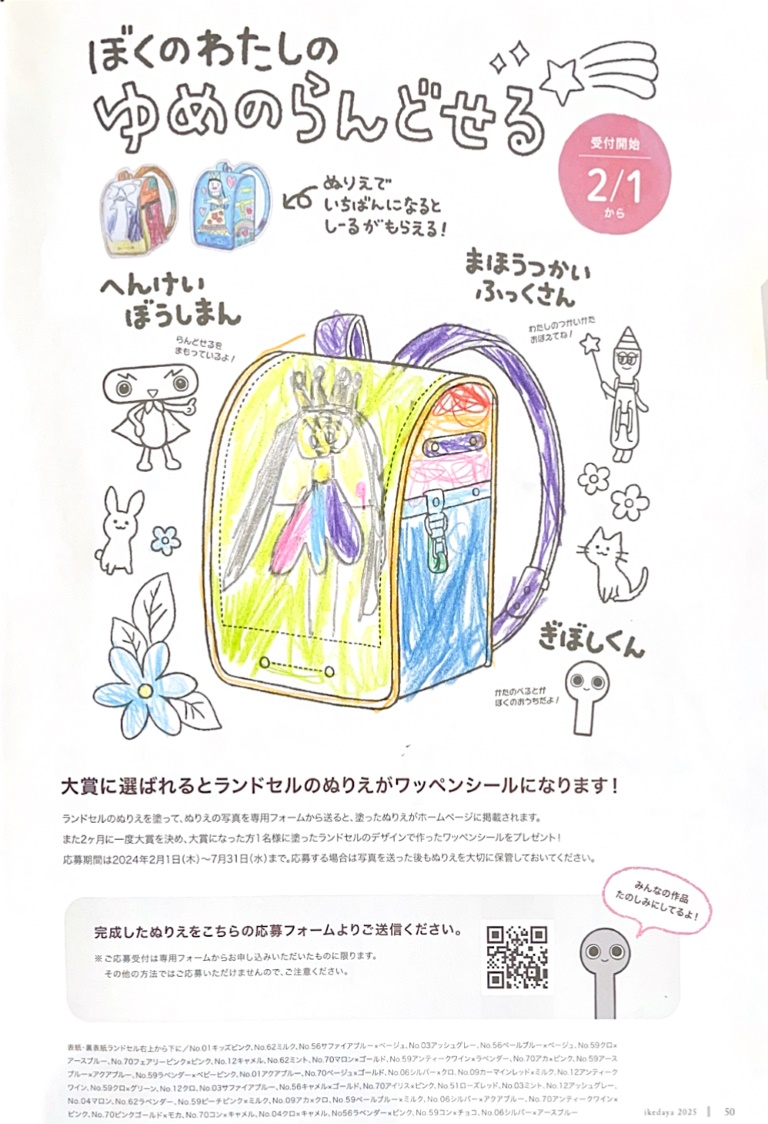 ぼくのわたしの
ゆめのらんどせる
受付開始
2/1
から
ぬりえで
いちばんになると
しーるがもらえる!
へんけい
ぼうしまん
らんどせるを
まもっているよ!
まほうつかい
ふっくさん
わたしのつかいかた
おぼえてね!
ぎぼしくん
かたのべるとが
ぼくのおうちだよ!
大賞に選ばれるとランドセルのぬりえがワッペンシールになります!
ランドセルのぬりえを塗って、ぬりえの写真を専用フォームから送ると、塗ったぬりえがホームページに掲載されます。
また2ヶ月に一度大賞を決め、大賞になった方1名様に塗ったランドセルのデザインで作ったワッペンシールをプレゼント!
応募期間は2024年2月1日(木)〜7月31日(水)まで。応募する場合は写真を送った後もぬりえを大切に保管しておいてください。
みんなの作品
たのしみにしてるよ!
完成したぬりえをこちらの応募フォームよりご送信ください。
※ご応募受付は専用フォームからお申し込みいただいたものに限ります。
その他の方法ではご応募いただけませんので、ご注意ください。
表紙・裏表紙ランドセル右上から下に/No.01キッズピンク、No.62ミルク、No.56サファイアブルー×ベージュ、No.03アッシュグレー、No.56ペールブルー×ベージュ、No.59クロ×
アースブルー、No.70フェアリーピンク×ピンク、No.12キャメル、No.62ミント、No.70マロン×ゴールド、No.59アンティークワイン×ラベンダー、No.70アカ×ピンク、No.59アース
ブルー×アクアブルー、No.59ラベンダー×ベビーピンク、No.01アクアブルー、No.70ベージュ×ゴールド、No.06シルバー×クロ、No.09カーマインレッド×ミルク、No.12アンティーク
ワイン、No.59クロ×グリーン、No.12クロ、No.03サファイアブルー、No.56キャメル×ゴールド、No.70アイリス×ピンク、No.51ローズレッド、No.03ミント、No.12アッシュグレー、
No.04マロン、No.62ラベンダー、No.59ピーチピンク×ミルク、No.09アカ×クロ、No.59ペールブルー×ミルク、No.06シルバー×アクアブルー、No.70アンティークワイン×
ピンク、No.70ピンクゴールド×モカ、No.70コン×キャメル、No.04クロ×キャメル、No56ラベンダー×ピンク、No.59コン×チョコ、No.06シルバー×アースブルー
ikedaya 2025 50